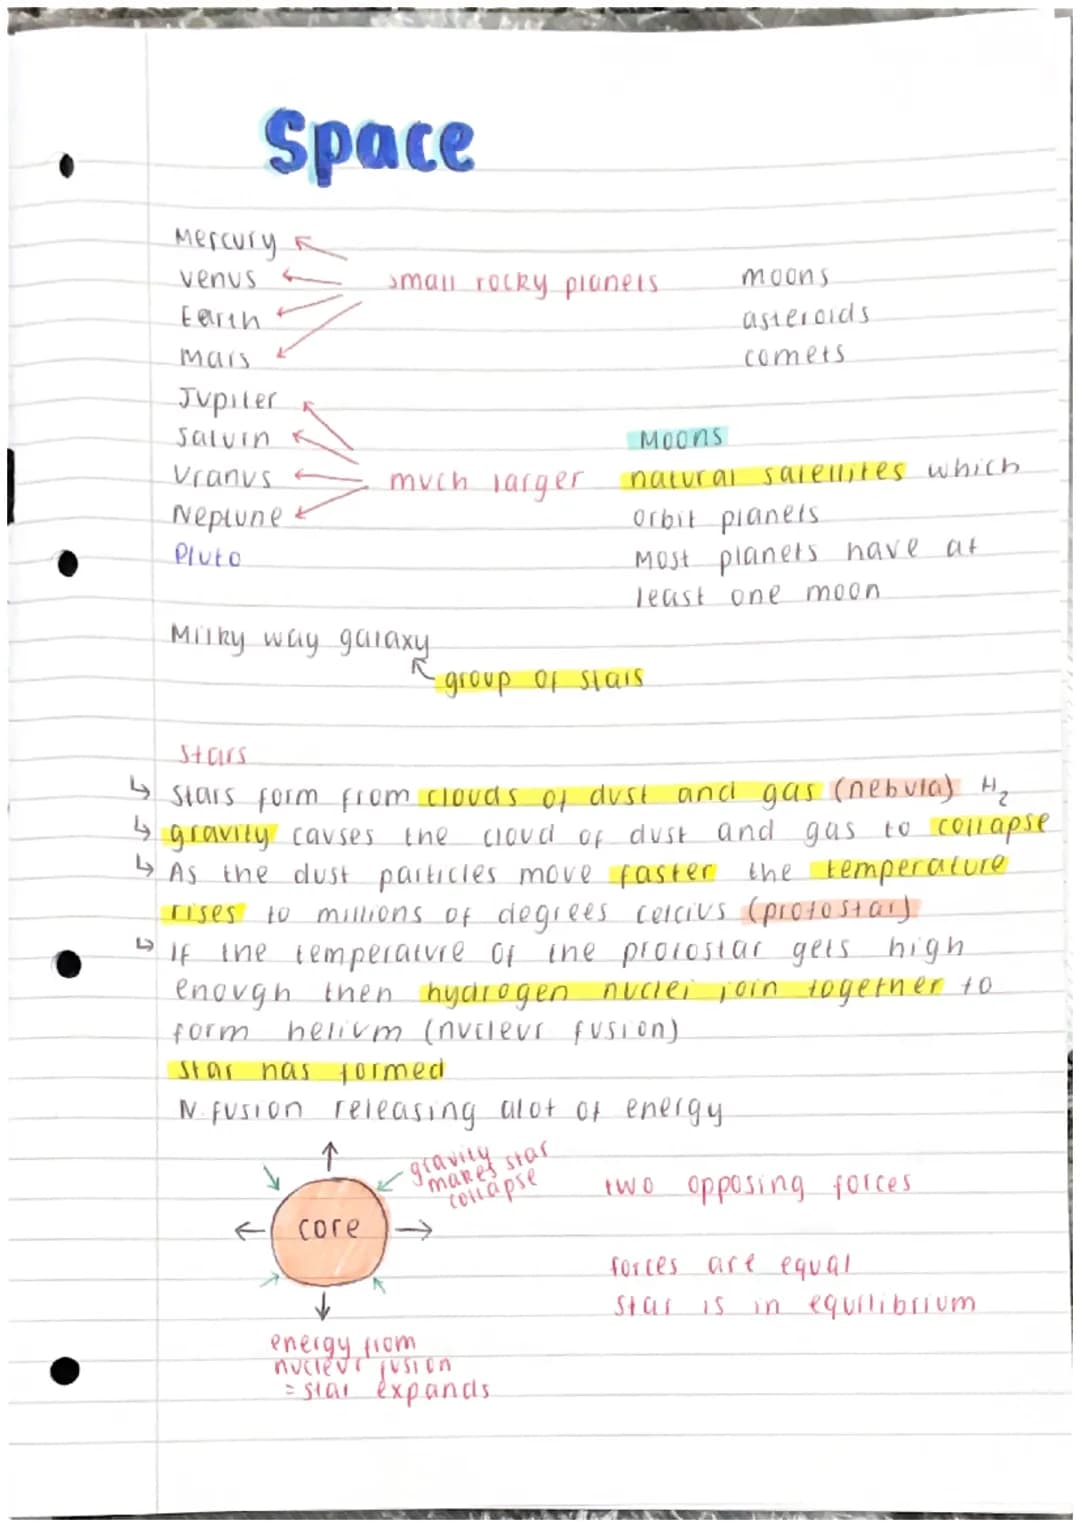 Space
Mercury
Venus
small rocky planets
moons
Earth
asteroids
Mars
comets
Jupiter
Saturn
Moons
Uranus
much larger
natural satellites which
Neptune
orbit planets
Pluto
Most planets have at
least one moon
Milky way galaxy
group of stars
Stars
↳ Stars form from clouds of dust and gas (nebula) H2
↳ gravity causes the cloud of dust and gas to collapse
↳ As the dust particles move faster the temperature
rises to millions of degrees celcius (protostar)
↳ If the temperature of the protostar gets high
enough then hydrogen nuclei join together to
form helium (nucleur fusion)
star has formed
N.fusion releasing alot of energy
gravity
makes star
collapse
two opposing forces
core
forces are equal
star is in equilibrium
energy from
nucleur fusion
= star expands